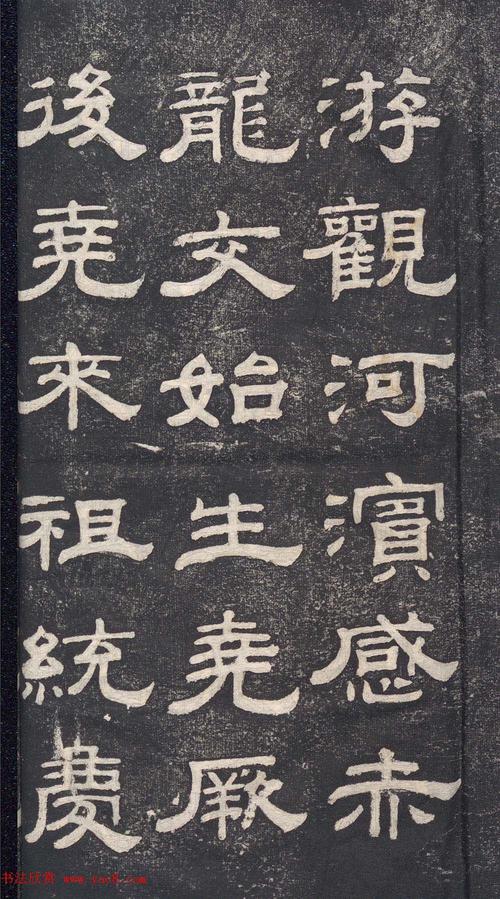 游觀河濱感赤
龍交始生堯厥
後堯來祖統慶
书法欣赏 www.yac8.com